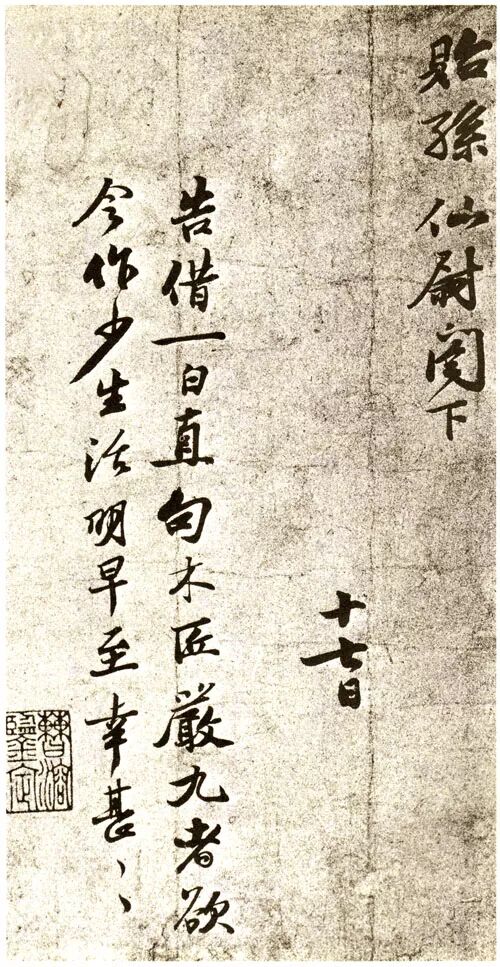 貽孫仙尉閣下
十七日
告借一白直句木匠嚴九者欲
令作少生活明早至幸甚〻〻
曹溶
鑒定